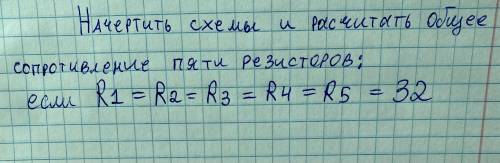 Начертить схемы и расчитать общее
сопротивление пяти резисторов;
если R1 = R2 = R3 = R4 = R5 = 32